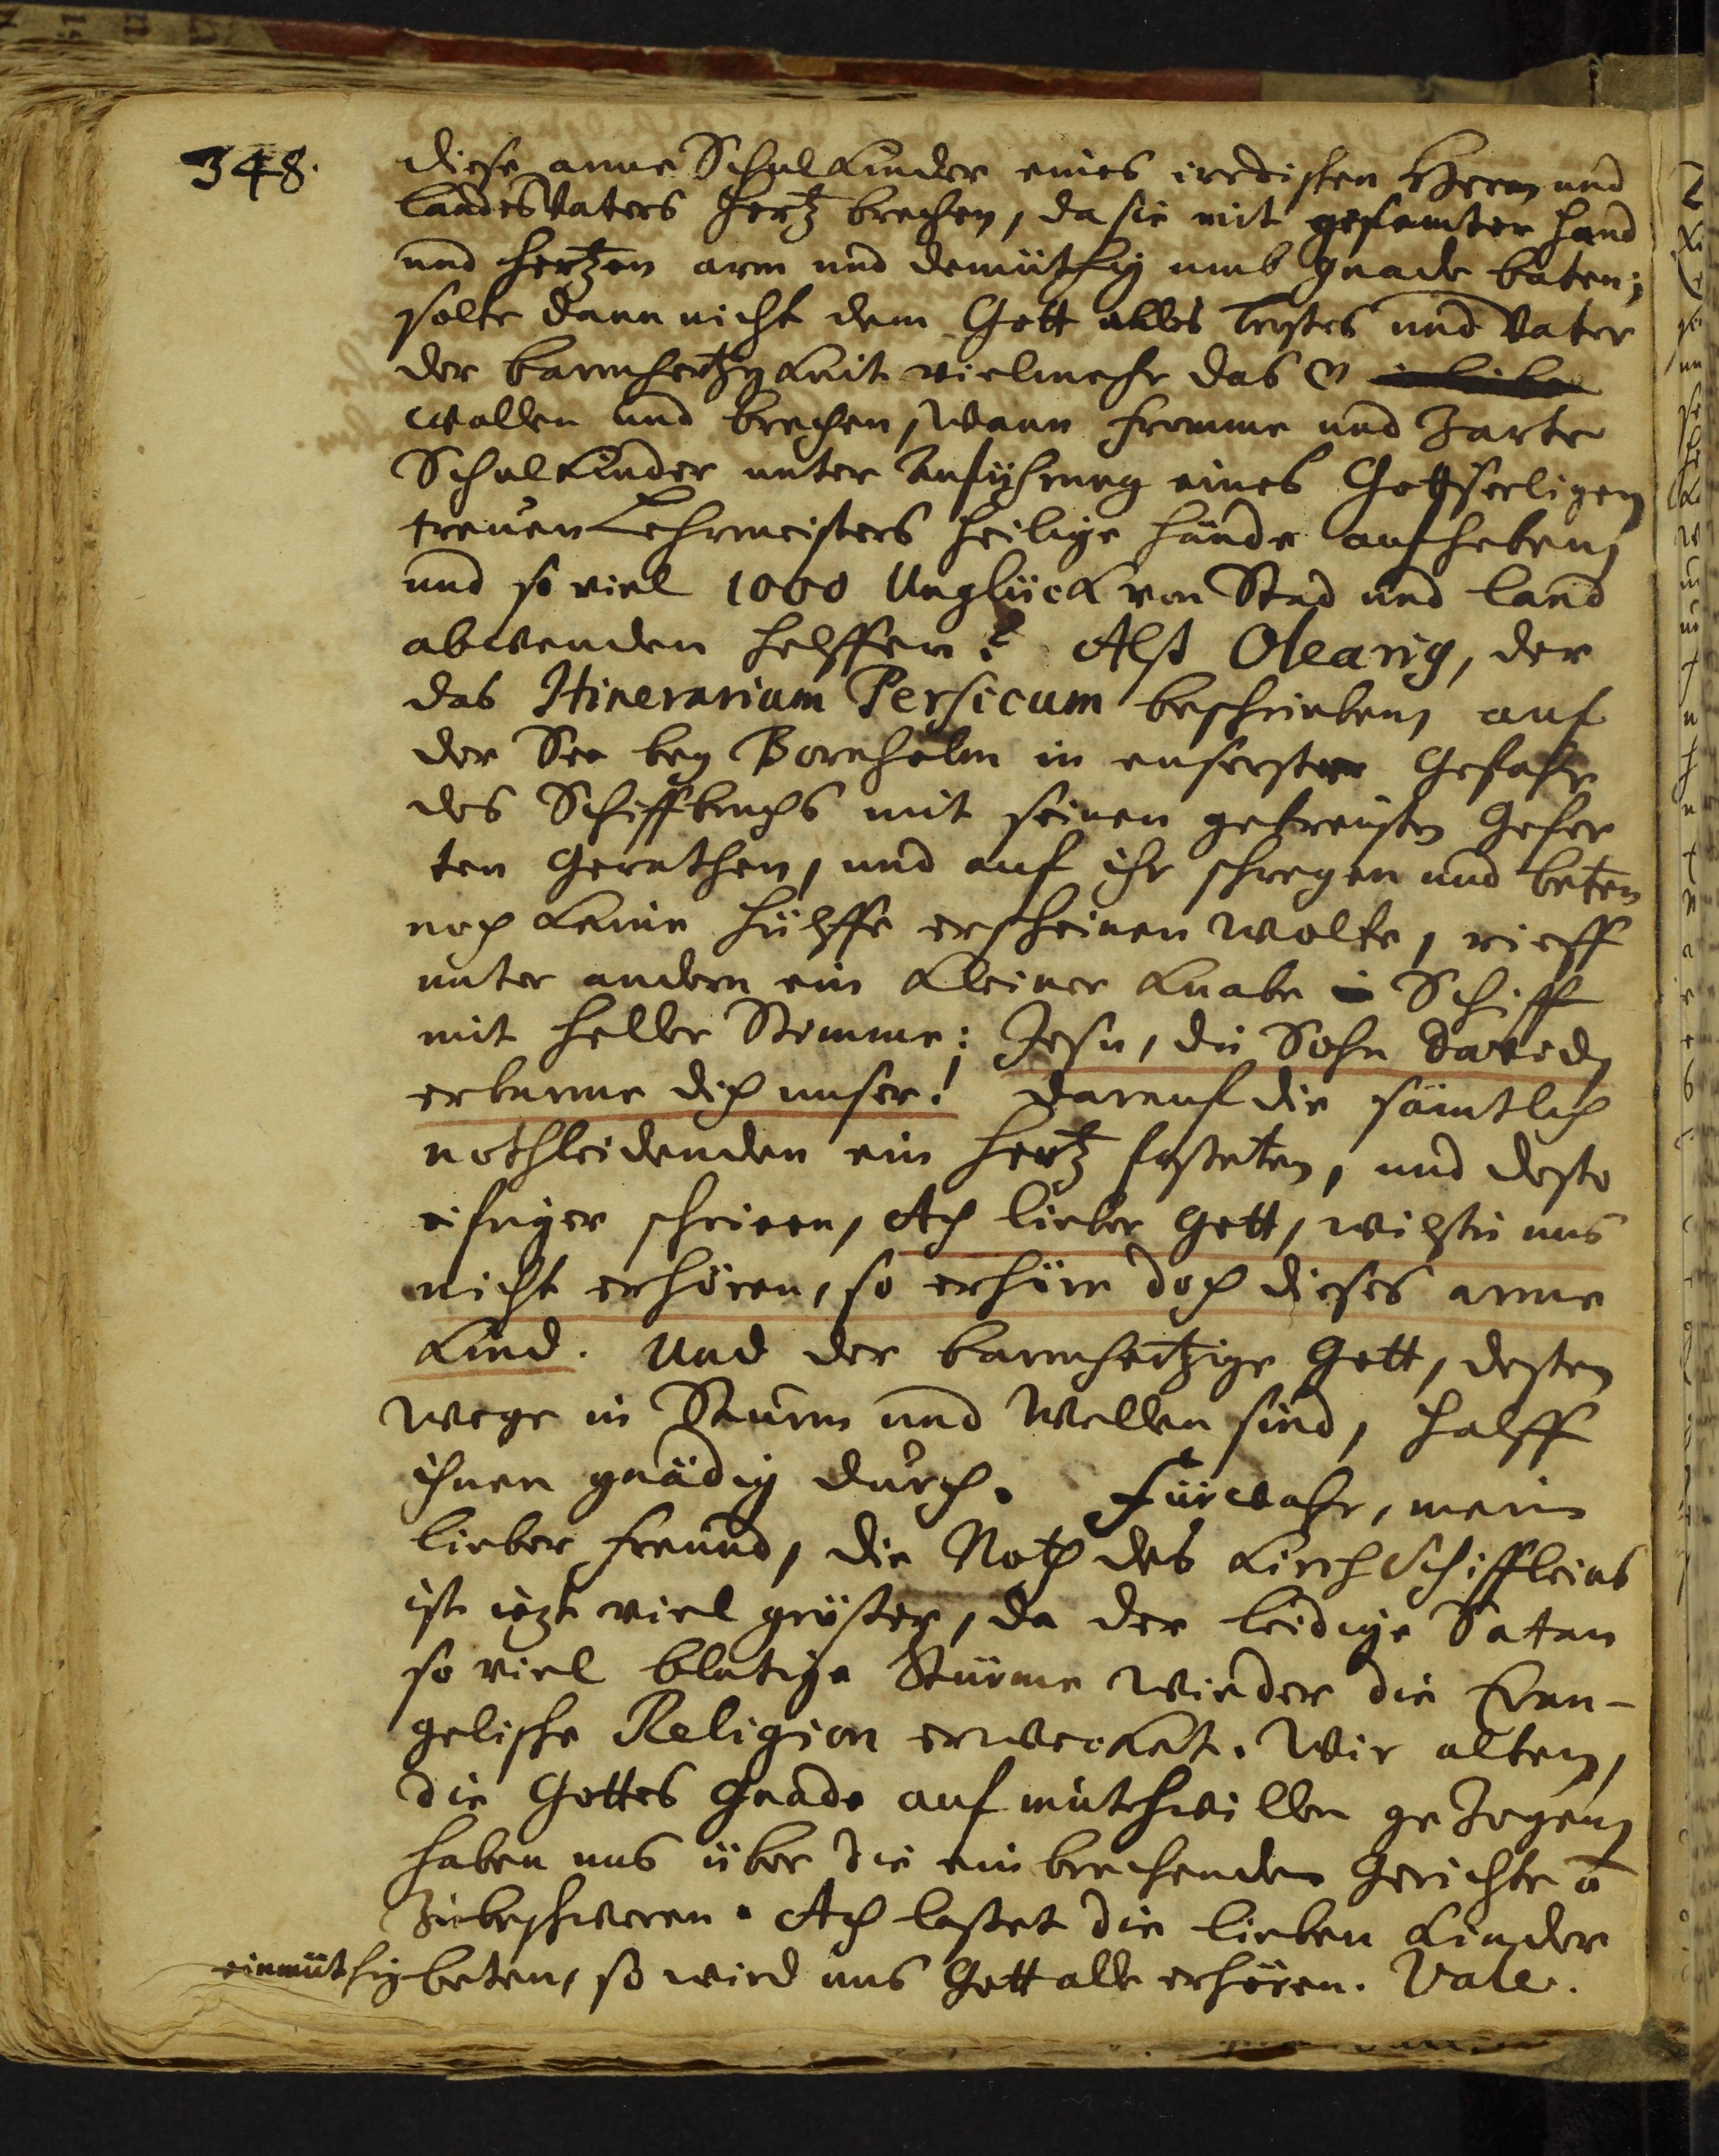 348.
diese arme Schulkinder eines irrdischen Herrn und
landesVaters Hertz brechen, da sie mit gesamter hand
und Hertzen arm und demüthig umb gnade baten;
solte dann nicht dem Gott alles Trostes und Vater
der barmhertzigkeit vielmehr das
wallen und brechen, Wann fromme und Zarte
Schulkinder unter Anführung eines Gottseeligen
treuen Lehrmeisters heilige hände aufheben,
und so viel 1000 Unglück von Stad und land
abwenden helffen? Alß Olearig, der
das Itinerarium Persicum beschrieben, auf
der See bey Bornholm in euserster Gefahr
des Schiffbruchs mit seinen getreusten Gefer
ten gerathen, und auf ihr schreyen und beten
noch keine hülffe erscheinen wolte, rieff
unter andern ein kleiner knabe Schiff
mit heller Stimme: Jesu, du Sohn David,
erbarme dich unser! Darauf die sämtlich
nothleidenden ein Hertz fasteten, und desto
eifriger schrieen, Ach lieber Gott, wilstu uns
nicht erhören, so erhöre doch dieses arme
kind. Und der barmhertzige Gott, dessen
wege in Sturm und Wellen sind, halff
ihnen gnädig durch. Fürwahr, mein
lieber freund, die Noth des KirchSchiffleins
ist itzt viel grösser, da der leidige Satan
so viel blutige Stürme wieder die Evan-
gelische Religion erwecket. Wir alten,
die Gottes Gnade auf muthwillen geZogen,
haben uns über die einbrechenden Gerichte ā
Zubeschweren. Ach lasset die lieben kinder
einmüthig beten, so wird uns Gott alle erhören. Vale.